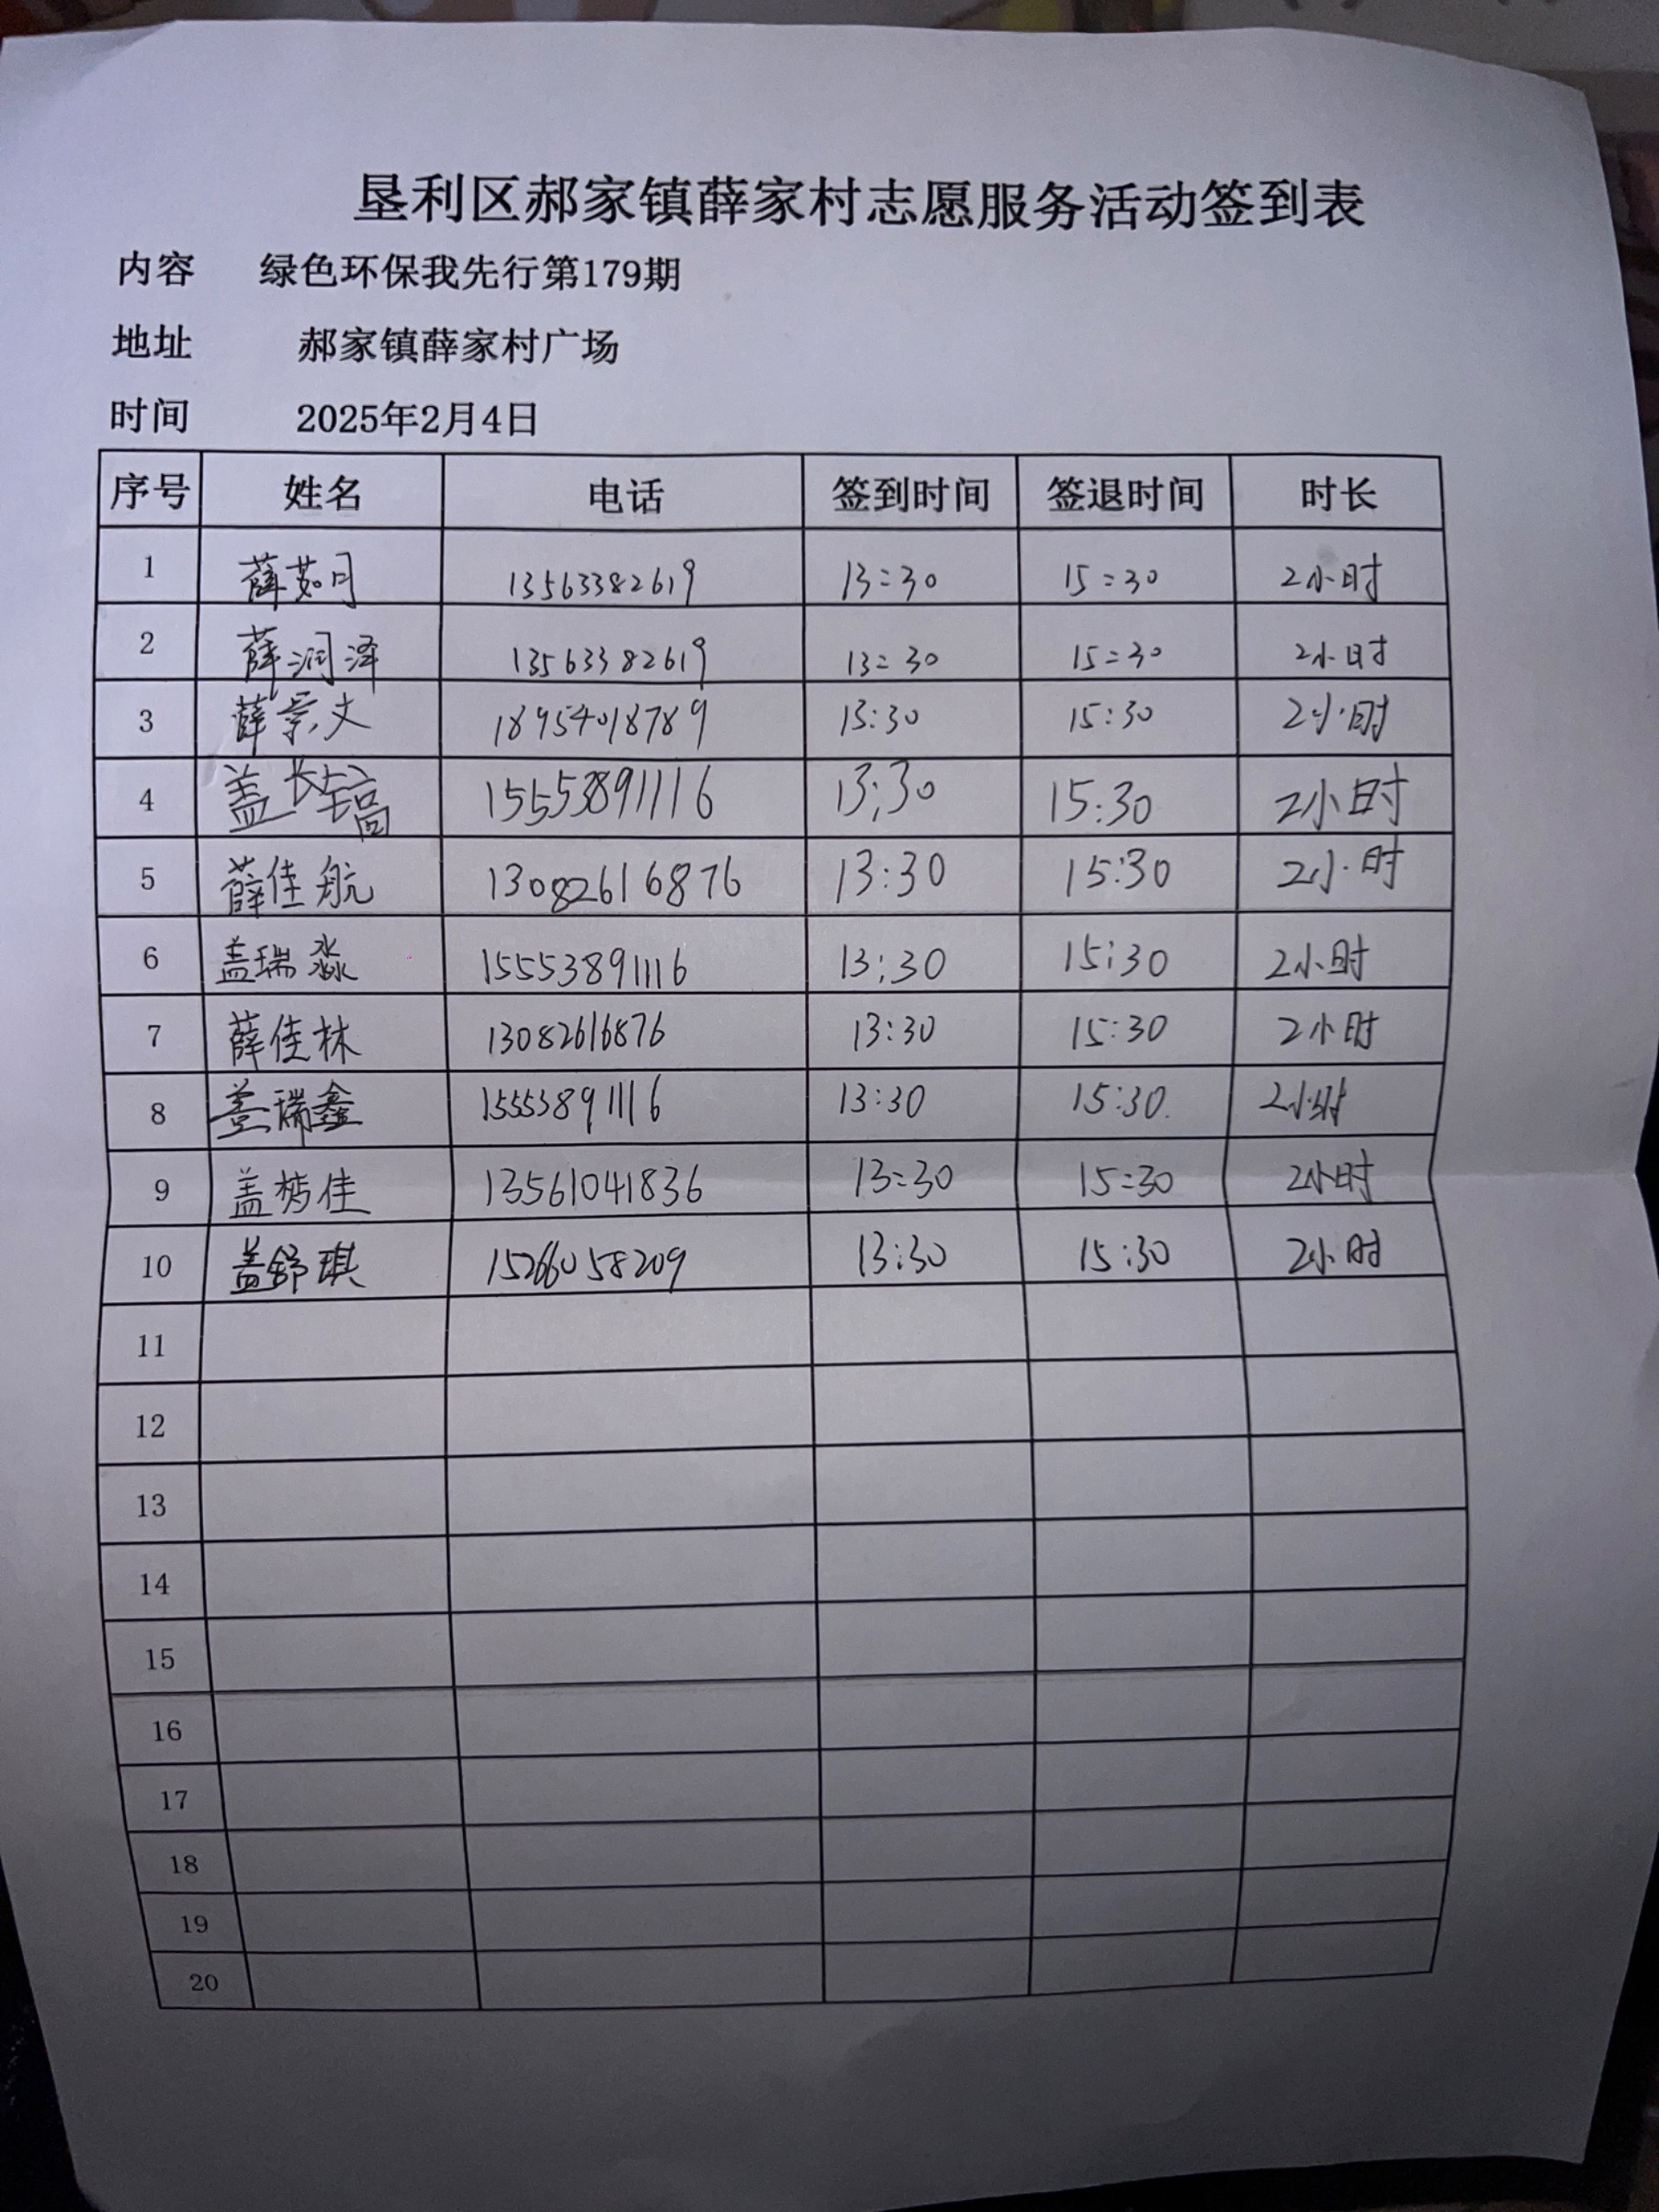 垦利区郝家镇薛家村志愿服务活动签到表
内容 绿色环保我先行第179期
地址 郝家镇薛家村广场
时间 2025年2月4日
序号 姓名 电话 签到时间 签退时间 时长
1 薛茹月 13563382619 13:30 15:30 2小时
2 薛润泽 13563382619 13:30 15:30 2小时
3 薛景文 18954018789 13:30 15:30 2小时
4 盖长镐 15553891116 13:30 15:30 2小时
5 薛佳航 13082616876 13:30 15:30 2小时
6 盖瑞淼 15553891116 13:30 15:30 2小时
7 薛佳林 13082616876 13:30 15:30 2小时
8 盖瑞鑫 15553891116 13:30 15:30 2小时
9 盖 佳 13561041836 13:30 15:30 2小时
10 盖舒琪 15266058209 13:30 15:30 2小时
11
12
13
14
15
16
17
18
19
20